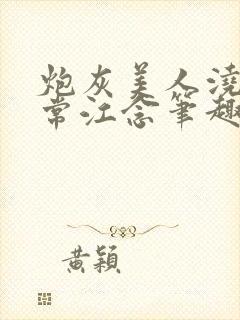 炮灰美人澆
常江念筆趣
黃穎